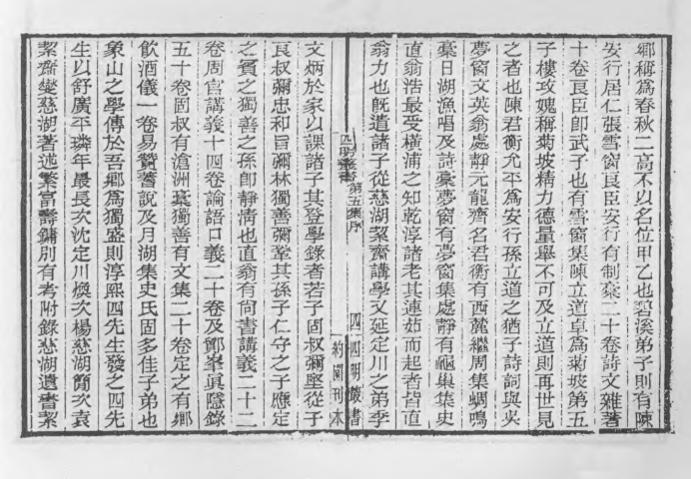 鄉稱爲春秋二高不以名位甲乙也碧溪弟子則有陳
安行居仁張雪窗良臣安行有制稾二十卷詩文雜著
十卷良臣卽武子也有雪窗集陳立道卓爲菊坡第五
子樓攻媿稱菊坡精力德量舉不可及立道則再世見
之者也陳君衡允平爲安行孫立道之猶子詩詞與吳
夢窗文英翁處靜元龍齊名君衡有西麓繼周集蜩鳴
稾日湖漁唱及詩稾夢窗有夢窗集處靜有龜巢集史
直翁浩最受橫浦之知乾淳諸老其連茹而起者皆直
翁力也旣遣諸子從慈湖絜齋講學又延定川之弟季
四明叢書 第五集序
四 四明叢書
約園刊本
文炳於家以課諸子其登學錄者若子固叔彌堅從子
良叔彌忠和旨彌林獨善彌鞏其孫子仁守之子應定
之賓之獨善之孫卽靜淸也直翁有尙書講義二十二
卷周官講義十四卷論語口義二十卷及鄮峯眞隱錄
五十卷固叔有滄洲稾獨善有文集二十卷定之有鄉
飮酒儀一卷易贊蓍說及月湖集史氏固多佳子弟也
象山之學傳於吾鄉爲獨盛則淳熙四先生發之四先
生以舒廣平璘年最長次沈定川煥次楊慈湖簡次袁
絜齋燮慈湖著述繁富壽鏞別有考附錄慈湖遺書絜